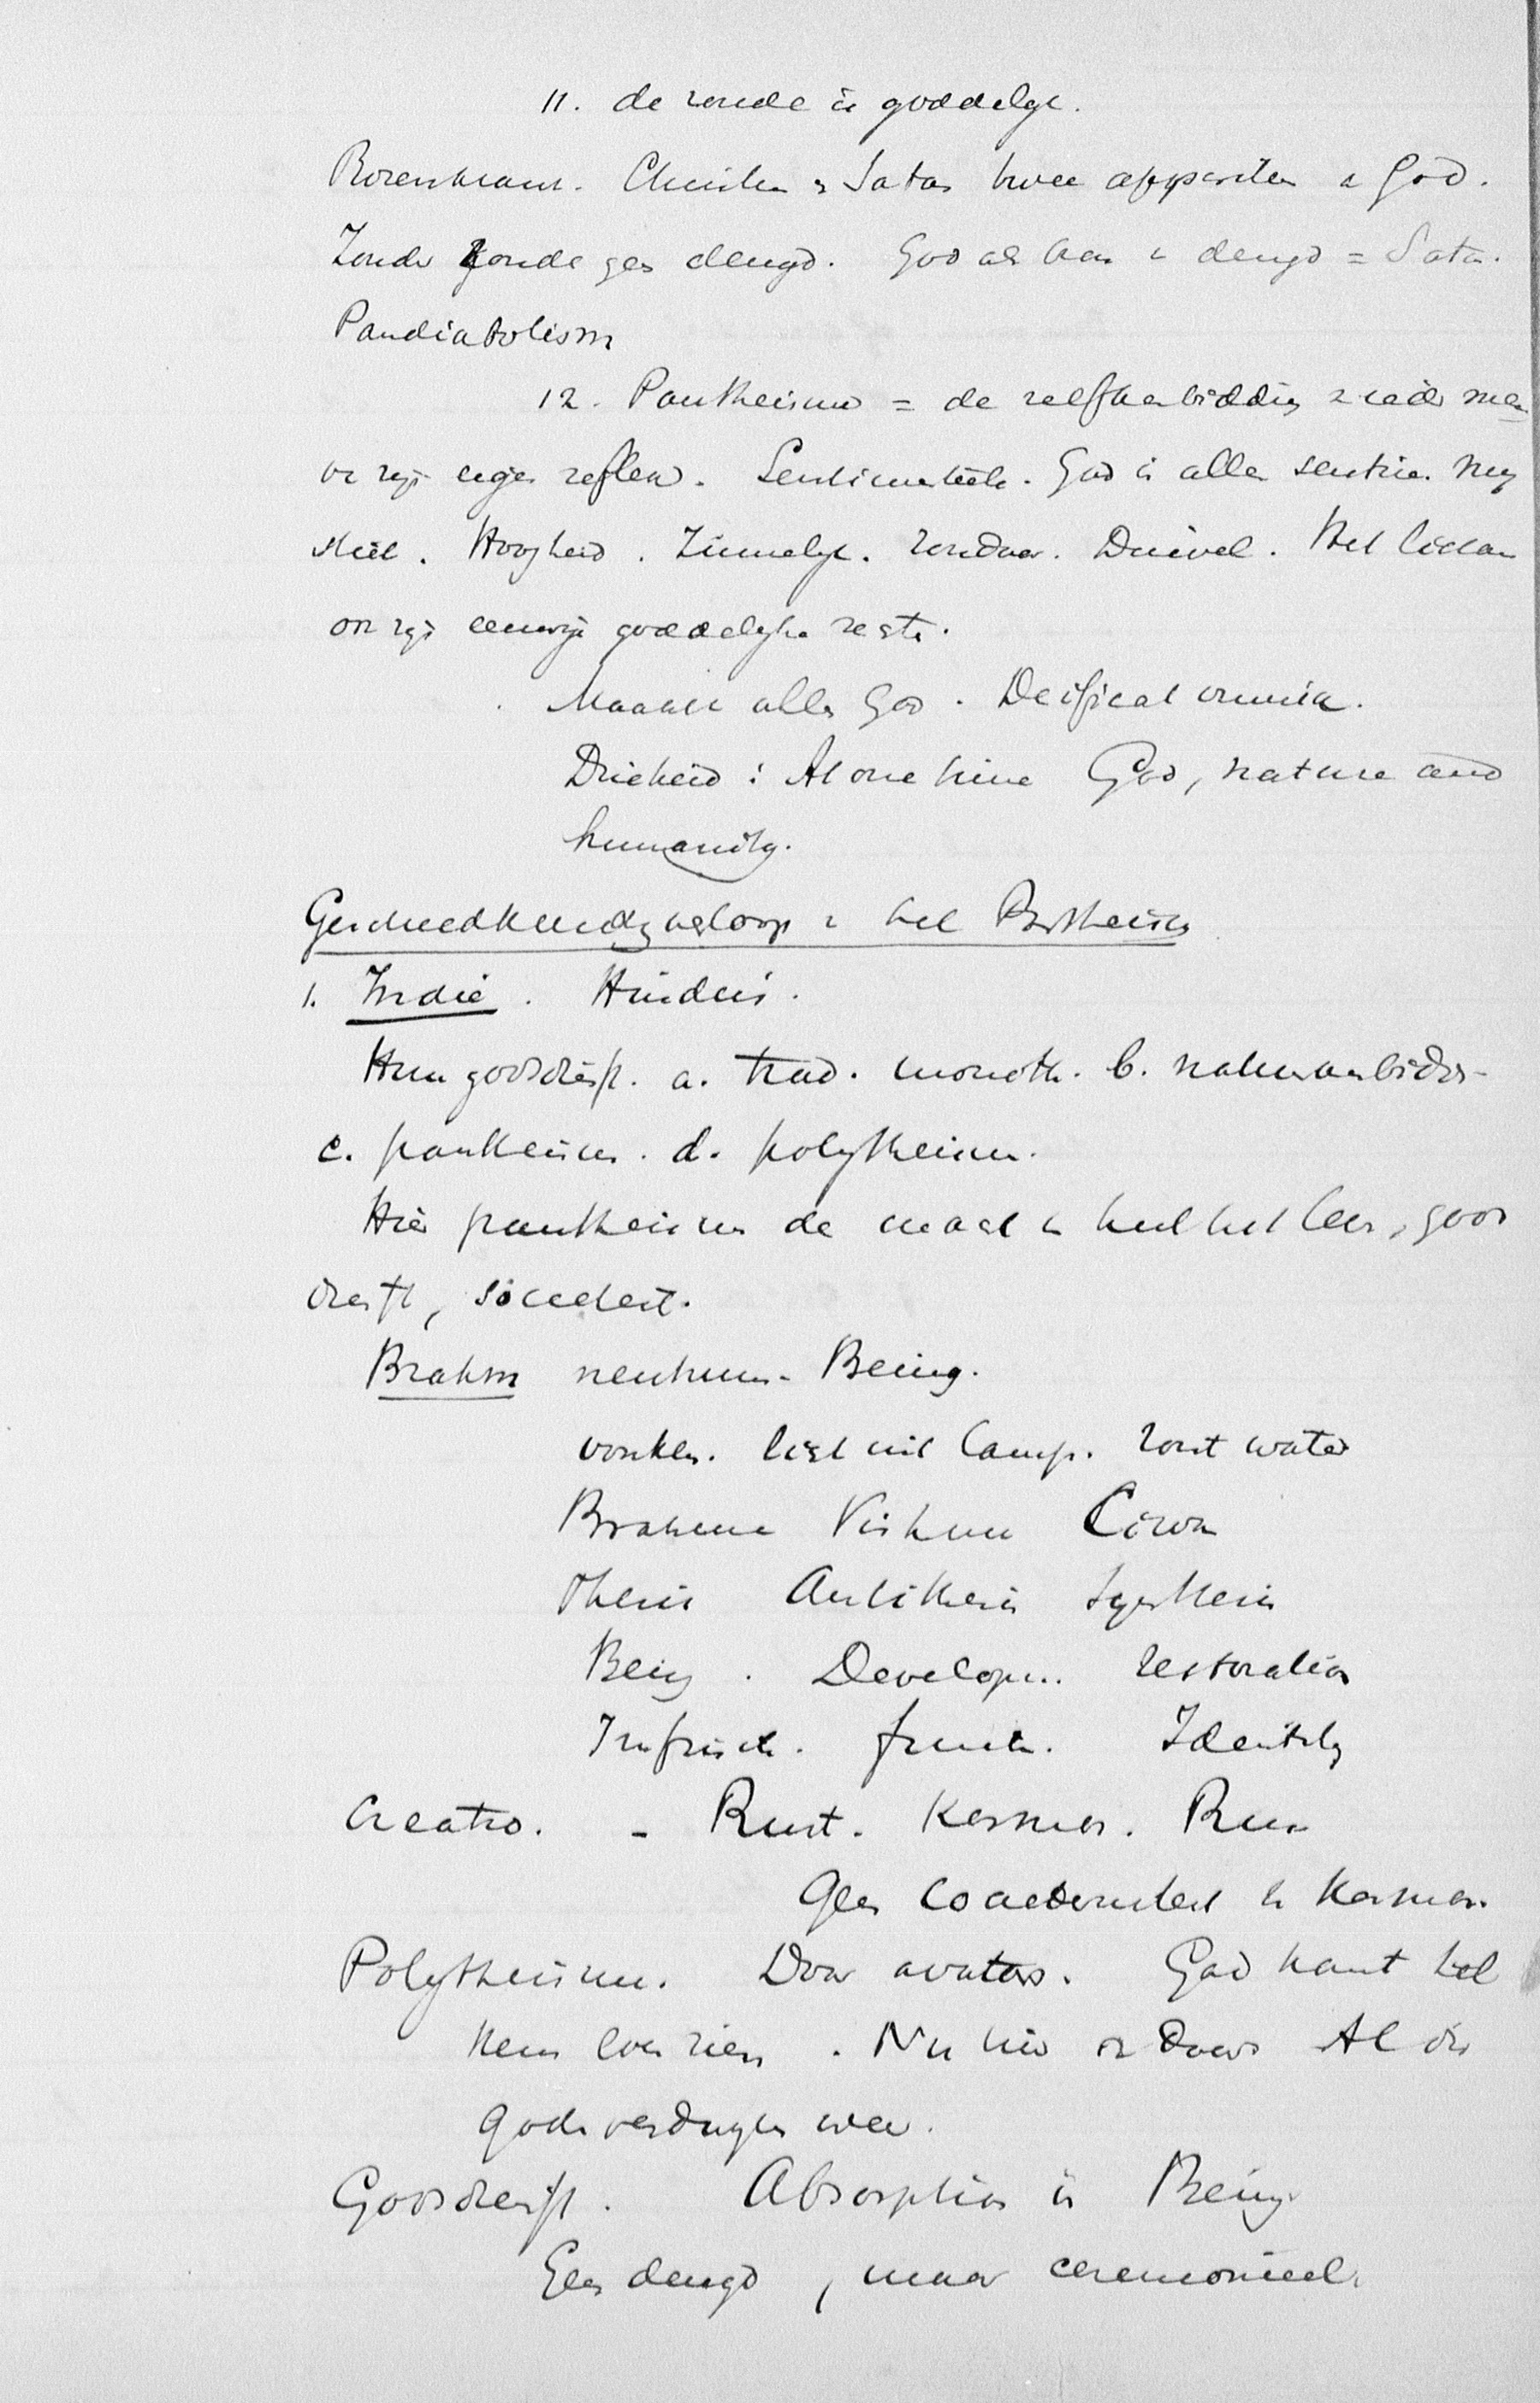 11. de zonde is goddelyk.
Rosenkranz. Christus & Satan twee apparitien v God.
Zonder zonde geen deugd. God als bron v deugd = Satan.
Pandiabolism
12. Pantheisme = de zelfaanbidding v ieder men
in zyn eigen reflex. Sentimenteele. God is alles sentim.
Hoogheid. Zinnelyk. Zondaar. Duivel. Het lichaam
en zyn eeuwige goddelyke rest.
Maakt alles God. Deificat omnia.
Drieheid: At one time God, nature and
humanity.
Geschiedkundig verloop v het Pantheism
1. Indie. Hindus.
Hun godsdienst. a. trad. monoth. b. natuuraanbidding
c. pantheism. d. polytheism.
Hier pantheisme de macht in heel het leven, gods
dienst, societeit.
Brahm neutrum. Being.
vonken. licht uit lamp. zout water
Brahma Vishnu Civa
Thesis Antithesis Synthesis
Being. Developm. restoration
Infinite. finite. Identity
Creatio. - Rust. Kosmos. Rust
Geen Kosmos.
Polytheisme. Door avatars. God komt tot
hem. Nu hier en daar Al die
goden verdwynen weer.
Godsdienst. Absorption in Being
Geen deugd, maar ceremonieel.